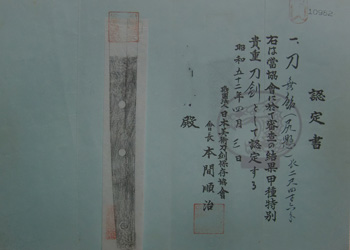 10962
認定書
一、刀 無銘(尻懸) 長二尺四寸
右は當協會に於て審査の結果甲種特別
貴重刀剣として認定する
昭和五十二年四月三日
財團法人日本美術刀剣保存協會
会長 本間順治
殿